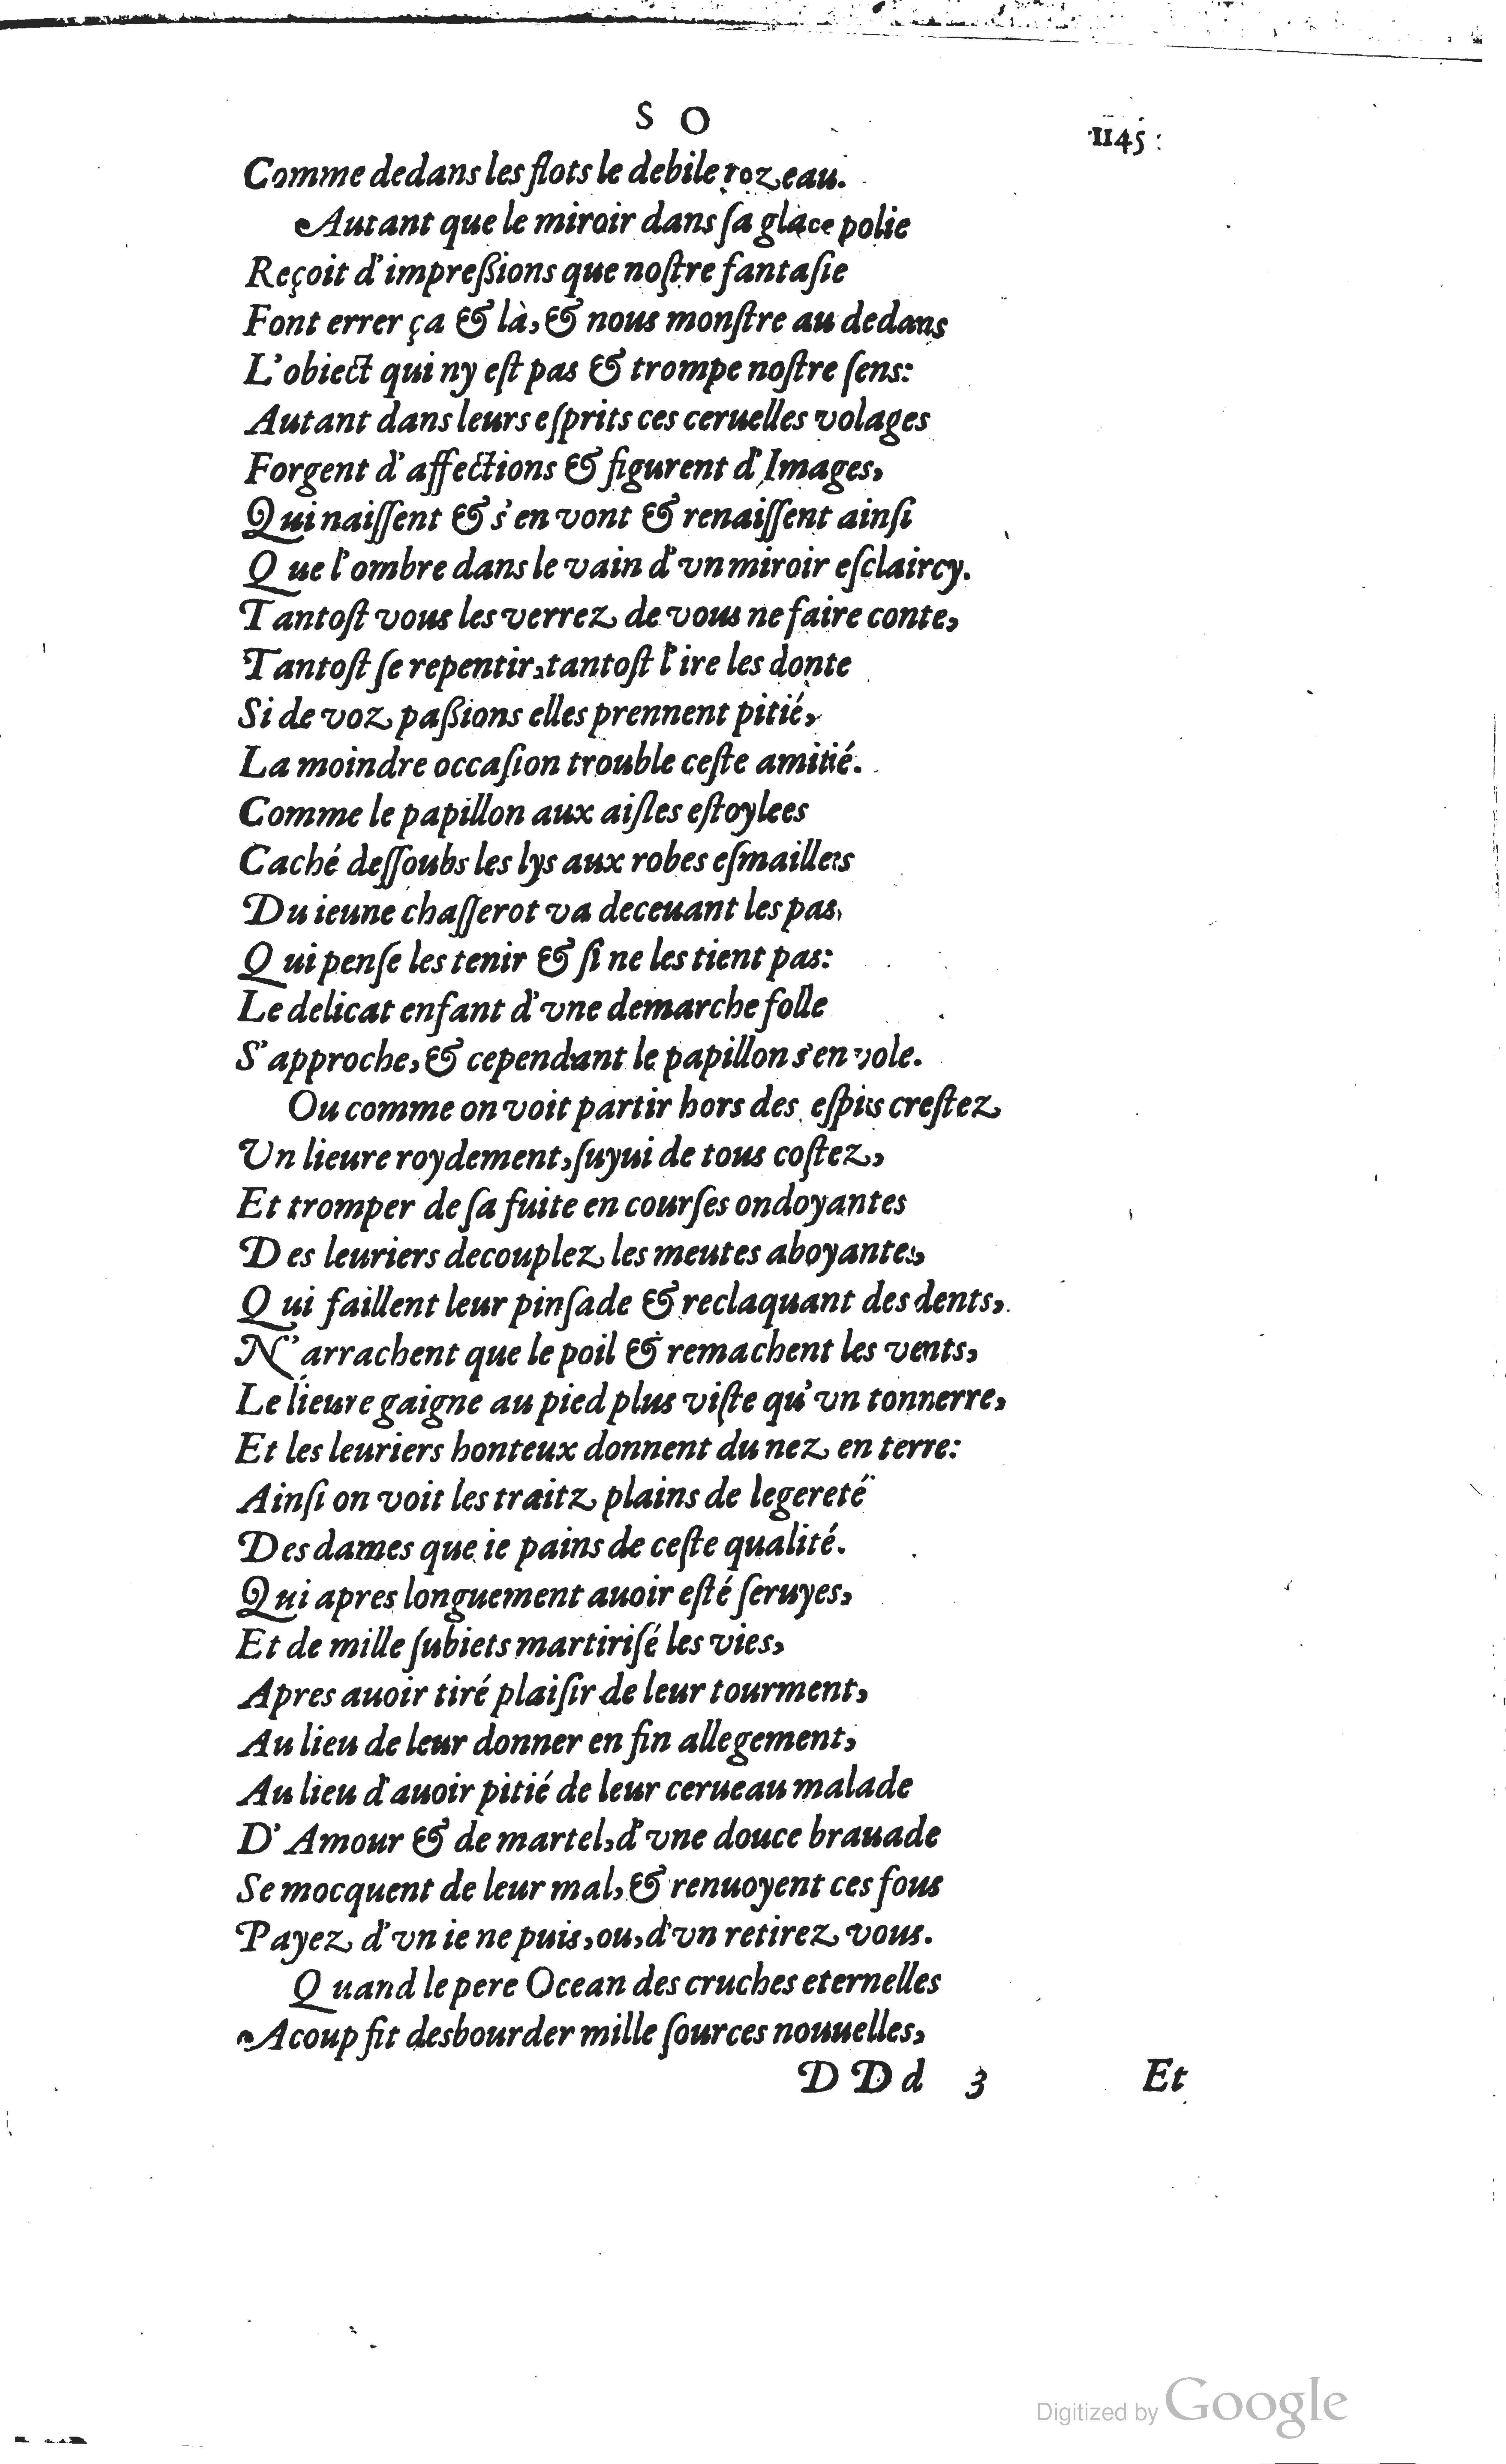 S O
1145
Comme dedans les flots le debile rozeau.
Autant que le miroir dans ſa glace polie
Reçoit d'impreßions que noſtre fantaſie
Font errer ça & là, & nous monſtre au dedans
L'obiect qui ny eſt pas & trompe noſtre ſens:
Autant dans leurs eſprits ces ceruelles volages
Forgent d'affections & figurent d'Images,
Qui naiſſent & s'en vont & renaiſſent ainſi
Que l'ombre dans le vain d'vn miroir eſclaircy.
Tantoſt vous les verrez de vous ne faire conte,
Tantoſt ſe repentir, tantoſt l'ire les donte
Si de voz paßions elles prennent pitié,
La moindre occaſion trouble ceſte amitié.
Comme le papillon aux aiſles eſtoylees
Caché deſſoubs les lys aux robes eſmaillees
Du ieune chaſſerot va deceuant les pas,
Qui penſe les tenir & ſi ne les tient pas:
Le delicat enfant d'vne demarche folle
S'approche, & cependant le papillon s'en vole.
Ou comme on voit partir hors des eſpics creſtez
Un lieure roydement, ſuyui de tous coſtez,
Et tromper de ſa fuite en courſes ondoyantes
Des leuriers decouplez les meutes aboyantes,
Qui faillent leur pinſade & reclaquant des dents,
N'arrachent que le poil & remachent les vents,
Le lieure gaigne au pied plus viſte qu'vn tonnerre,
Et les leuriers honteux donnent du nez en terre:
Ainſi on voit les traitz plains de legereté
Des dames que ie pains de ceſte qualité.
Qui apres longuement auoir eſté ſeruyes,
Et de mille ſubiets martiriſé les vies,
Apres auoir tiré plaiſir de leur tourment,
Au lieu de leur donner en fin allegement,
Au lieu d'auoir pitié de leur cerueau malade
D'Amour & de martel, d'vne douce brauade
Se mocquent de leur mal, & renuoyent ces fous
Payez d'vn ie ne puis, ou, d'vn retirez vous.
Quand le pere Ocean des cruches eternelles
Acoup fit desbourder mille ſources nouuelles,
DDd 3 Et
Digitized by Google